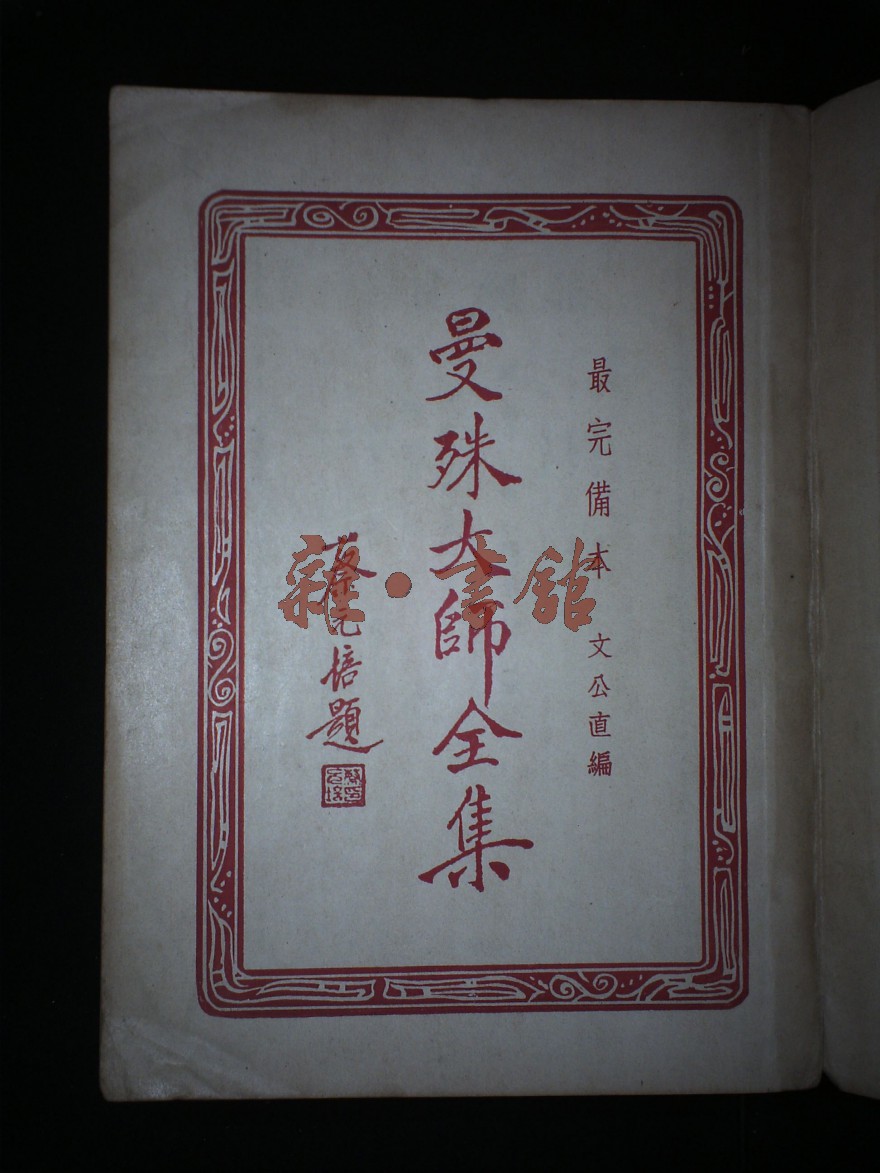 最完備本 文公直編
曼殊大師全集
蔡元培題
雜·書館